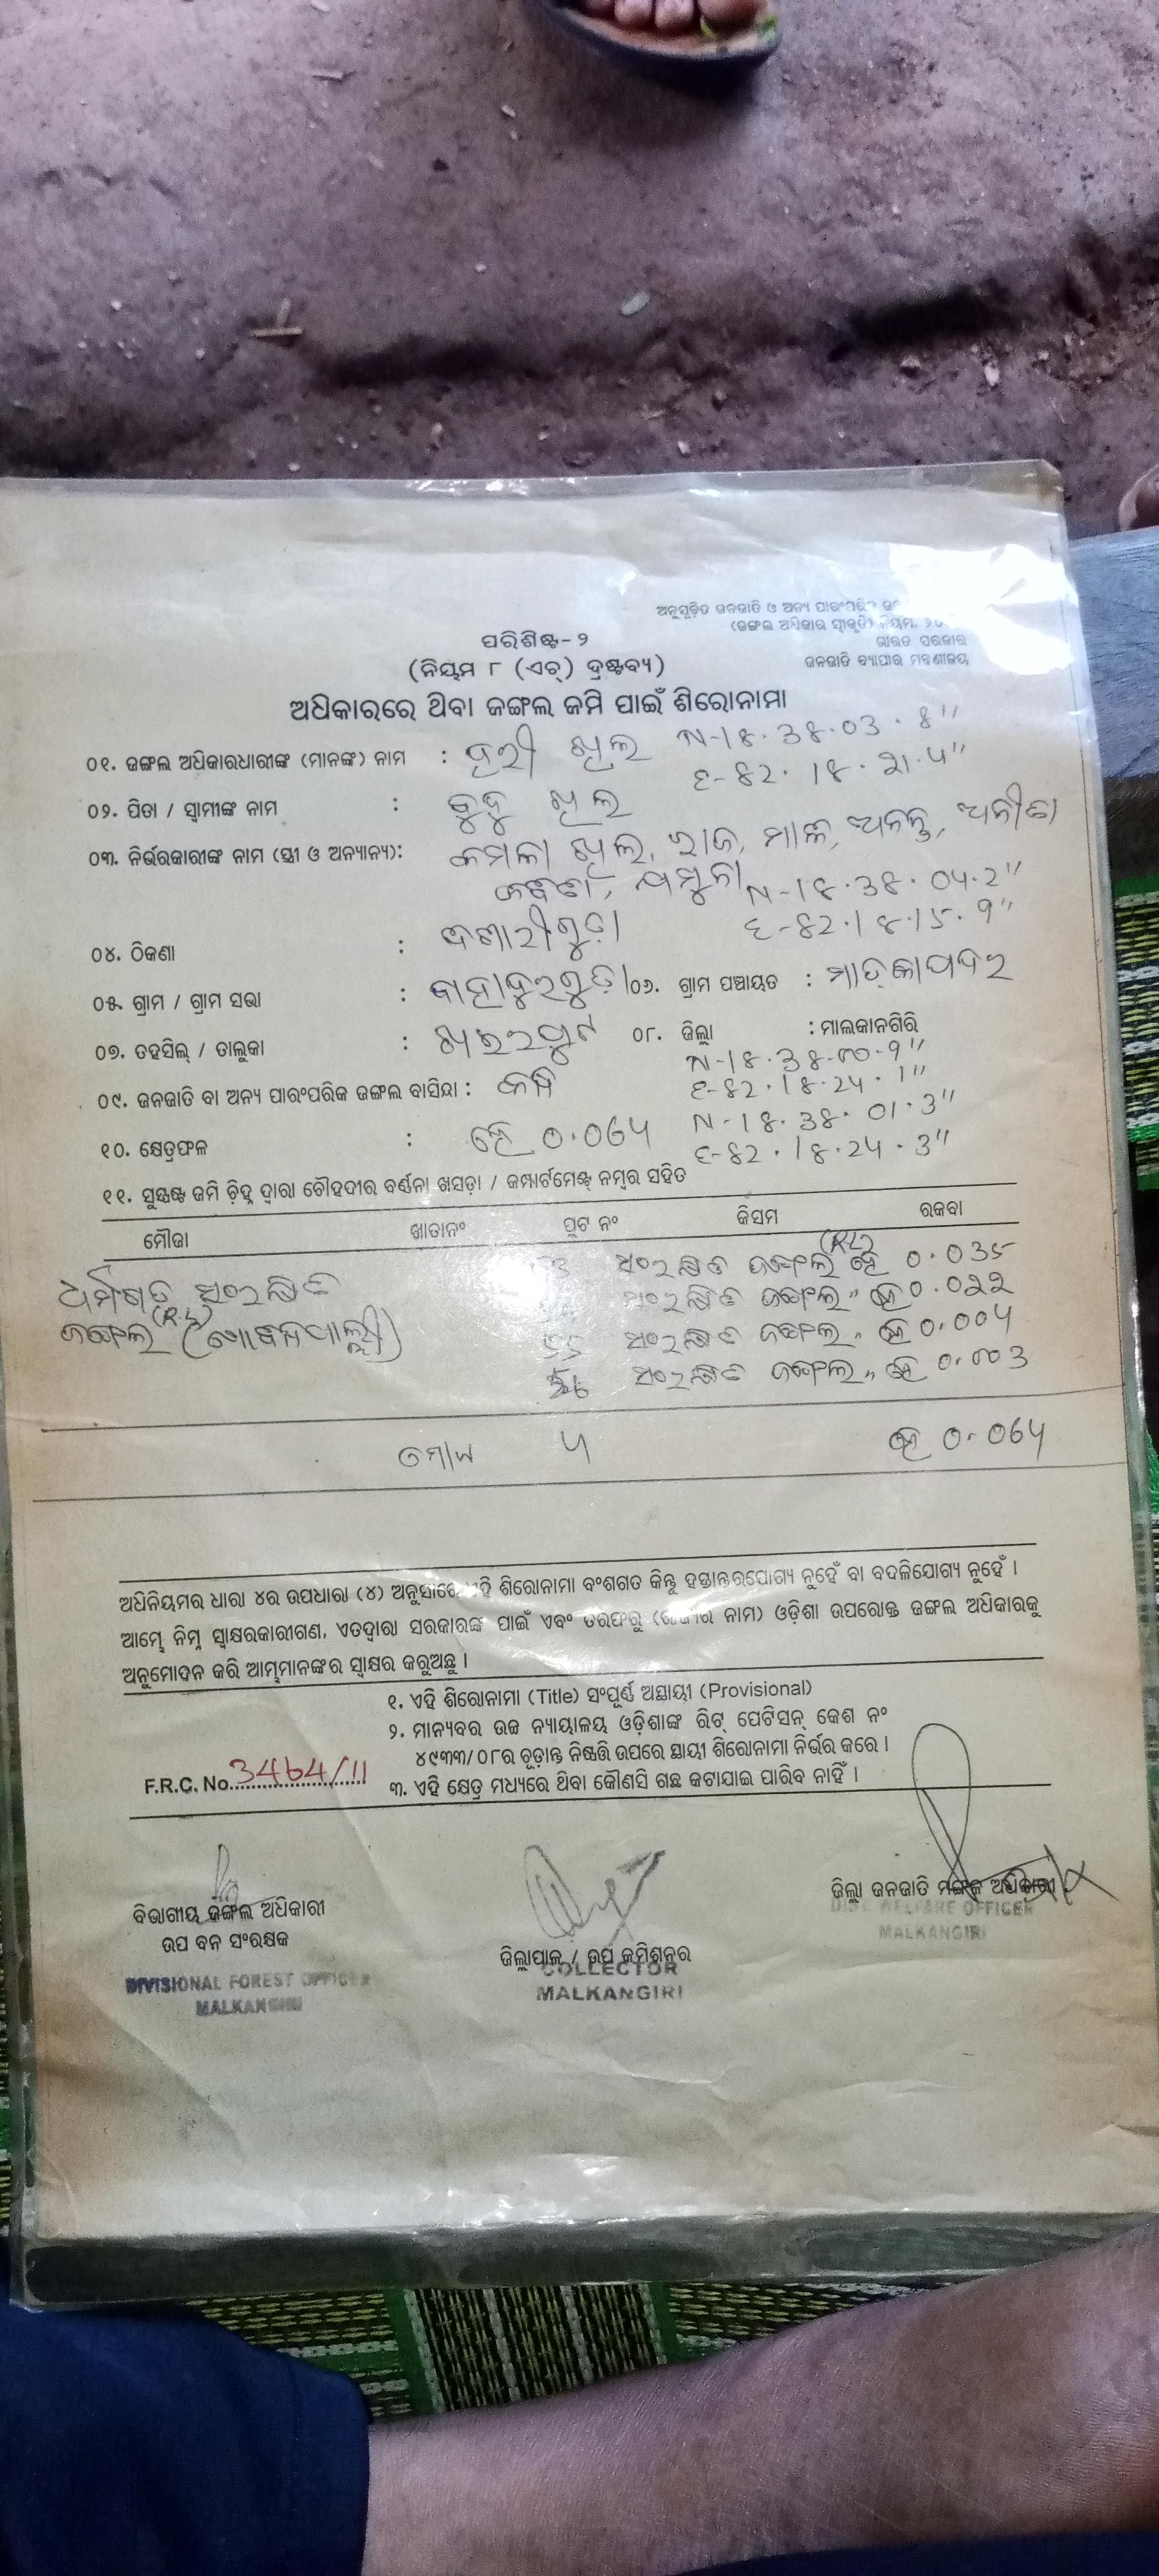 ଅନୁସୂଚିତ ଜନଜାତି ଓ ଅନ୍ୟ ପାରଂପରିକ
(ଜଙ୍ଗଲ ଅଧିକାର ସ୍ୱୀକୃତି) ନିୟମ,
ଭାରତ ସରକାର
ଜନଜାତି ବ୍ୟାପାର ମନ୍ତ୍ରଣାଳୟ
ପରିଶିଷ୍ଟ-୨
(ନିୟମ ୮ (ଏଚ୍) ଦ୍ରଷ୍ଟବ୍ୟ)
ଅଧିକାରରେ ଥିବା ଜଙ୍ଗଲ ଜମି ପାଇଁ ଶିରୋନାମା
୦୧. ଜଙ୍ଗଲ ଅଧିକାରଧାରୀଙ୍କ (ମାନଙ୍କ) ନାମ : ହରୀ ଖିଲ N-18.38.03.8"
E-82.18.21.4"
୦୨. ପିତା / ସ୍ୱାମୀଙ୍କ ନାମ : ବୁଦୁ ଖିଲ
୦୩. ନିର୍ଭରକାରୀଙ୍କ ନାମ (ସ୍ତ୍ରୀ ଓ ଅନ୍ୟାନ୍ୟ): କମଳା ଖିଲ, ରାଜ, ଅନନ୍ତ,
ଯମୁନା N-18.38.04.2"
E-82.18.15.9"
୦୪. ଠିକଣା :
୦୫. ଗ୍ରାମ / ଗ୍ରାମ ସଭା : ବାହାଦୁରଗୁଡ଼ା ୦୬. ଗ୍ରାମ ପଞ୍ଚାୟତ : ମାଟ୍‌କାପଦର
୦୭. ତହସିଲ୍ / ତାଲୁକା : ଖଇରପୁଟ ୦୮. ଜିଲ୍ଲା : ମାଲକାନଗିରି
N-18.38.00.9"
୦୯. ଜନଜାତି ବା ଅନ୍ୟ ପାରଂପରିକ ଜଙ୍ଗଲ ବାସିନ୍ଦା : E-82.18.24.1"
N-18.38.01.3"
୧୦. କ୍ଷେତ୍ରଫଳ : ହେ 0.064 E-82.18.24.3"
୧୧. ସୁସ୍ପଷ୍ଟ ଜମି ଚିହ୍ନ ଦ୍ୱାରା ଚୌହଦୀର ବର୍ଣ୍ଣନା ଖସଡ଼ା / କମ୍ପାର୍ଟମେଣ୍ଟ୍ ନମ୍ବର ସହିତ
ମୌଜା ଖାତାନଂ ପ୍ଲଟ ନଂ କିସମ ରକବା
ସଂରକ୍ଷିତ ସଂରକ୍ଷିତ ଜଙ୍ଗଲ ହେ 0.035
ସଂରକ୍ଷିତ ଜଙ୍ଗଲ " ହେ 0.022
ଜଙ୍ଗଲ 55 ସଂରକ୍ଷିତ ଜଙ୍ଗଲ " ହେ 0.004
56 ସଂରକ୍ଷିତ ଜଙ୍ଗଲ " ହେ 0.003
ମୋଟ 4 ହେ 0.064
ଅଧିନିୟମର ଧାରା ୪ର ଉପଧାରା (୪) ଅନୁସାରେ ଏହି ଶିରୋନାମା ବଂଶଗତ କିନ୍ତୁ ହସ୍ତାନ୍ତରଯୋଗ୍ୟ ନୁହେଁ ବା ବଦଳିଯୋଗ୍ୟ ନୁହେଁ ।
ଆମ୍ଭେ ନିମ୍ନ ସ୍ୱାକ୍ଷରକାରୀଗଣ, ଏତଦ୍ୱାରା ସରକାରଙ୍କ ପାଇଁ ଏବଂ ତରଫରୁ (ରାଜ୍ୟର ନାମ) ଓଡ଼ିଶା ଉପରୋକ୍ତ ଜଙ୍ଗଲ ଅଧିକାରକୁ
ଅନୁମୋଦନ କରି ଆମ୍ଭମାନଙ୍କର ସ୍ୱାକ୍ଷର କରୁଅଛୁ ।
୧. ଏହି ଶିରୋନାମା (Title) ସଂପୂର୍ଣ୍ଣ ଅସ୍ଥାୟୀ (Provisional)
୨. ମାନ୍ୟବର ଉଚ୍ଚ ନ୍ୟାୟାଳୟ ଓଡ଼ିଶାଙ୍କ ରିଟ୍ ପେଟିସନ୍ କେଶ ନଂ
୪୯୩୩/୦୮ର ଚୂଡ଼ାନ୍ତ ନିଷ୍ପତ୍ତି ଉପରେ ସ୍ଥାୟୀ ଶିରୋନାମା ନିର୍ଭର କରେ ।
F.R.C. No. 3464/11 ୩. ଏହି କ୍ଷେତ୍ର ମଧ୍ୟରେ ଥିବା କୌଣସି ଗଛ କଟାଯାଇ ପାରିବ ନାହିଁ ।
ଜିଲ୍ଲା ଜନଜାତି ମଙ୍ଗଳ ଅଧିକାରୀ
DIST WELFARE OFFICER
MALKANGIRI
ବିଭାଗୀୟ ଜଙ୍ଗଲ ଅଧିକାରୀ
ଉପ ବନ ସଂରକ୍ଷକ
DIVISIONAL FOREST OFFICER
MALKANGIRI
ଜିଲ୍ଲାପାଳ / ଉପ କମିଶନର
COLLECTOR
MALKANGIRI